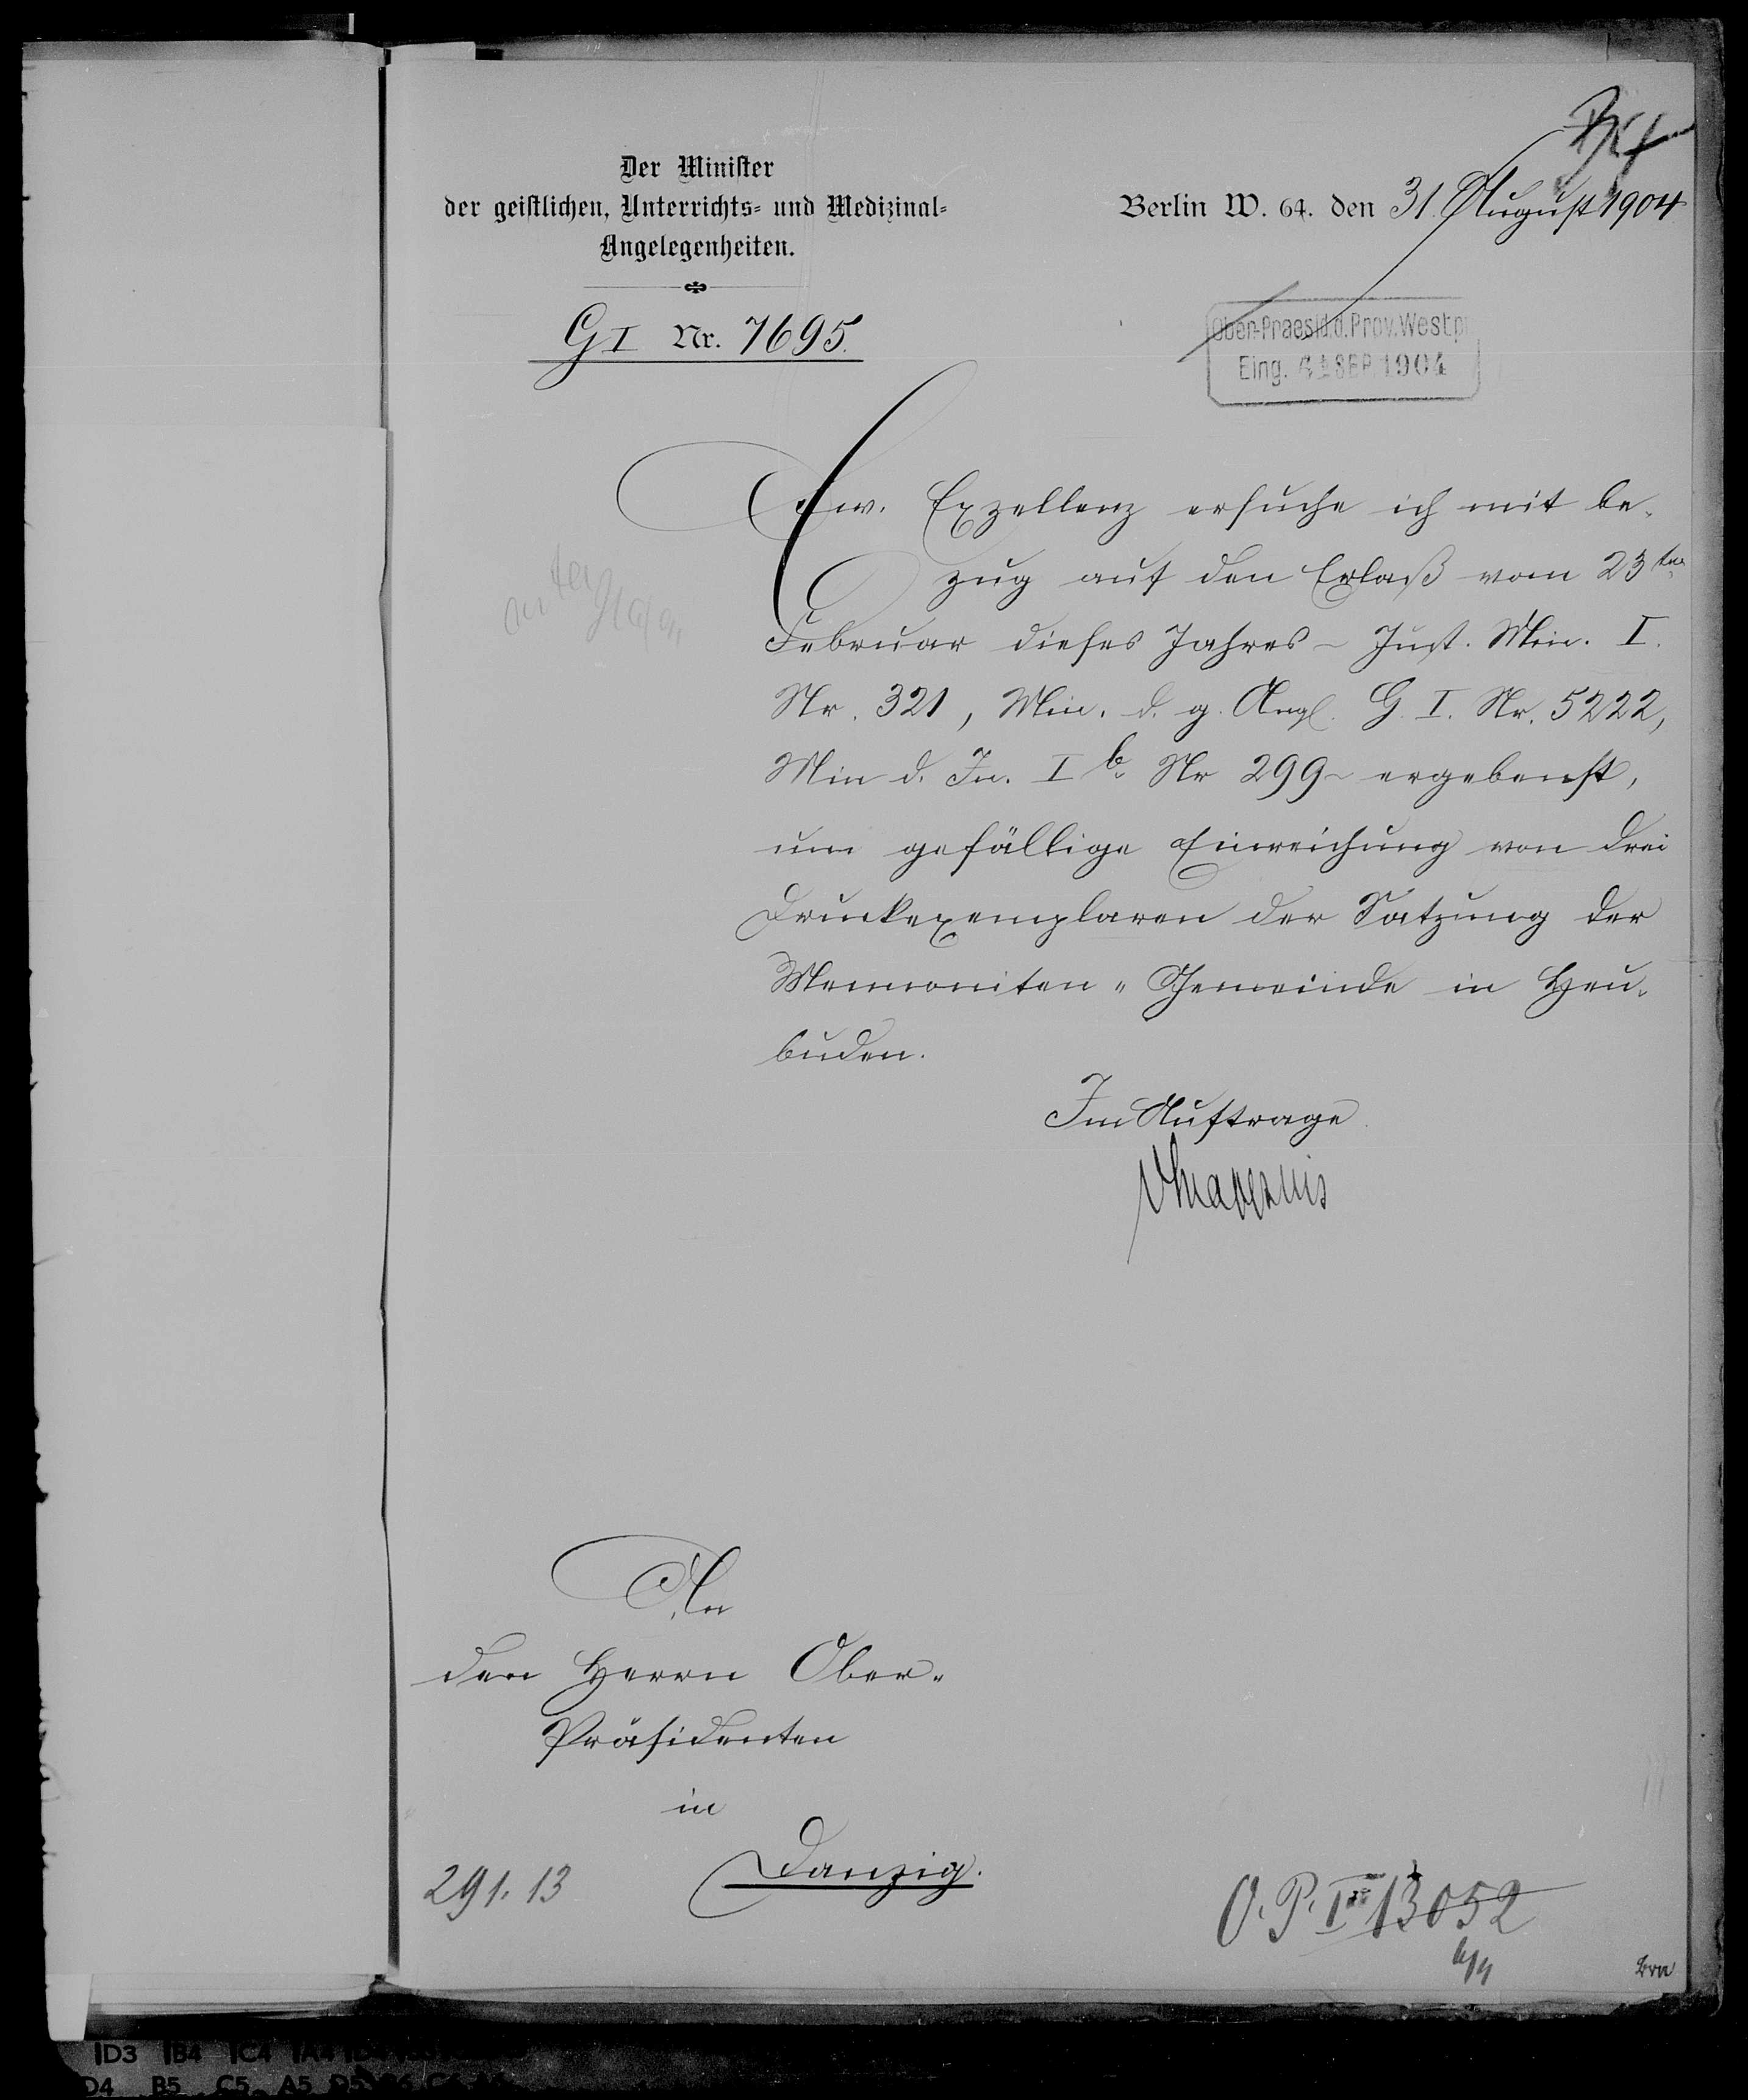 Der Minister
der geistlichen, Unterrichts- und Medizinal-
Angelegenheiten.
G I Nr. 7695.
Berlin W. 64. den 31. August 1904
Ober-Praesid. d. Prov. Westp
Eing. SEP. 1904
Ew. Exzellenz ersuche ich mit be-
zug auf den Erlaß vom 23ten
Februar dieses Jahres - Just. Min. I.
Nr. 321, Min. d. g. Angl. G. I. Nr. 5222,
Min d. In. I b. Nr 299 - ergebenst,
um gefällige Einreichung von drei
Druckexemplaren der Satzung der
Mennoniten-Gemeinde in Heu-
buden.
Im Auftrage
An
den Herrn Ober-
Präsidenten
in
Danzig.
291. 13
O. P. I 13052
D3 B4 C4 A4
D4 B5 C5 A5 D5